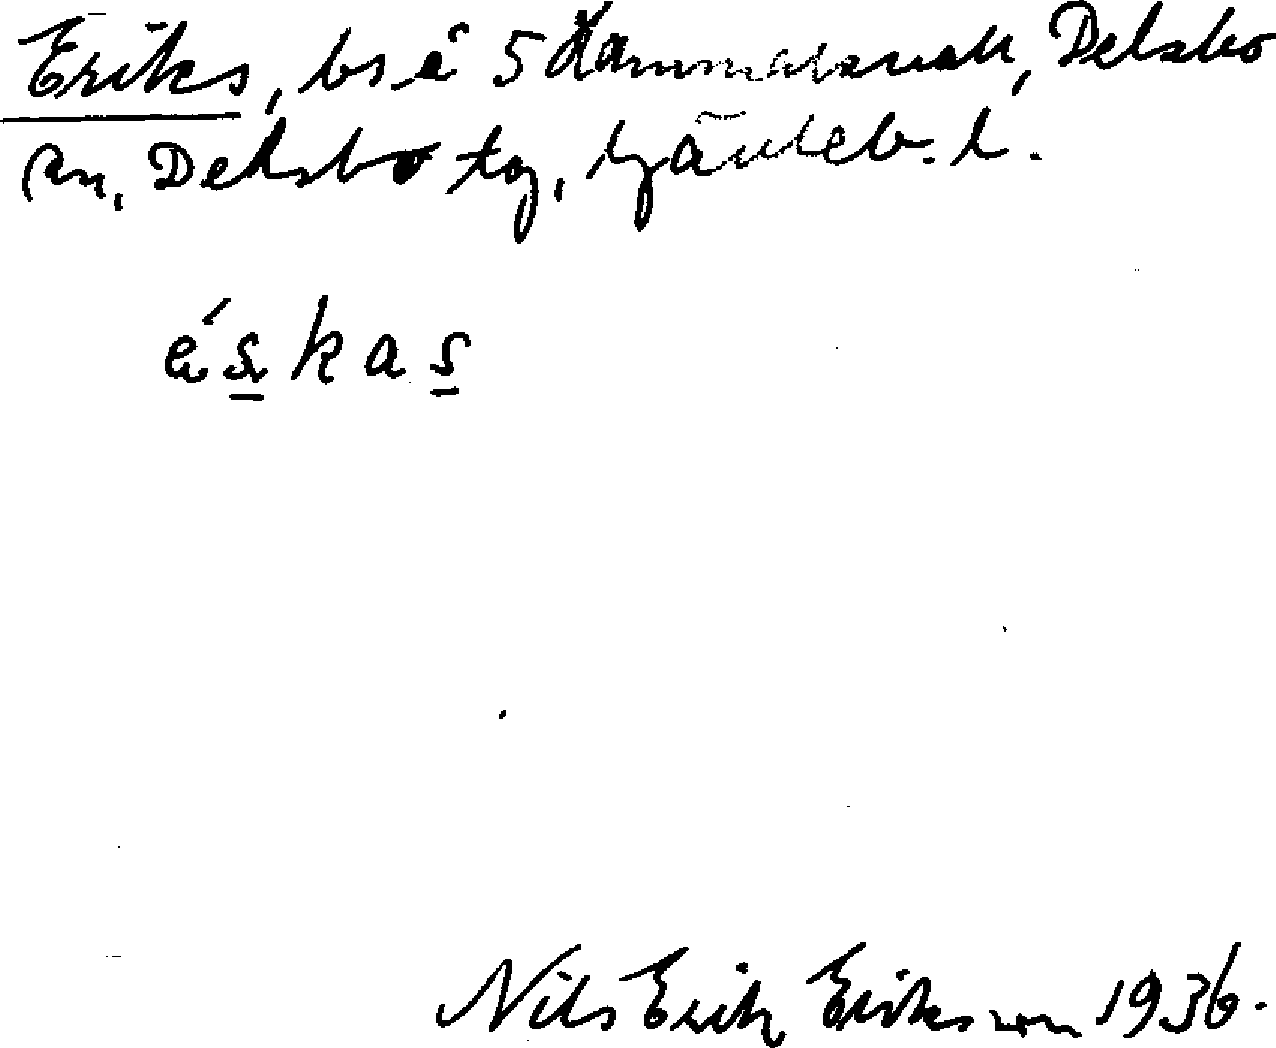 Eriks, bs å 5 Hammarsvall, Delsbo
sn, Delsbo tg, Gävleb. l.
éskas
Nils Erik Eriksson 1936.